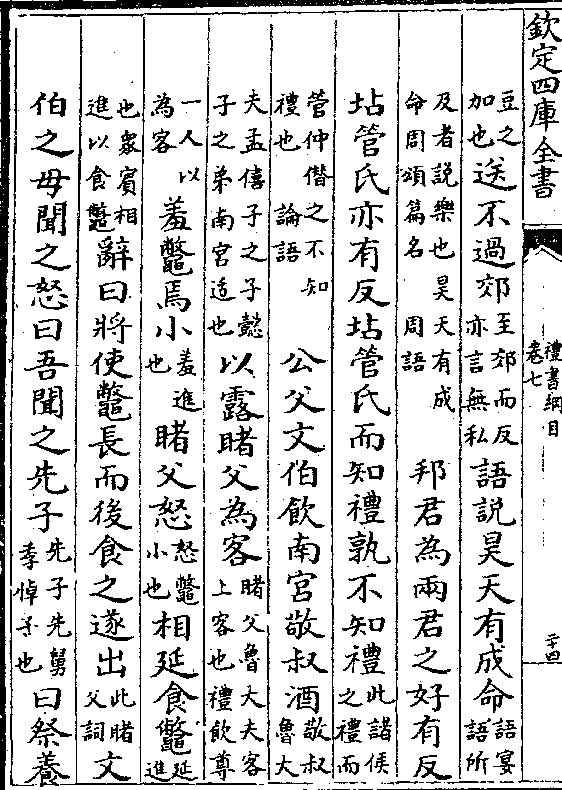 欽定四庫全書
禮書綱目
卷七
二十四
豆之加也送不過郊至郊而反亦言無私語說昊天有成命語宴語所
及者說樂也昊天有成命周頌篇名 周語 邦君為兩君之好有反
坫管氏亦有反坫管氏而知禮孰不知禮此諸侯之禮而
管仲僭之不知禮也 論語 公父文伯飲南宮敬叔酒敬叔魯大
夫孟僖子之子懿子之弟南宮适也以露睹父為客睹父魯大夫客上客也禮飲尊
一人以為客羞鼈焉小羞進也睹父怒怒鼈小也相延食鼈延進
也衆賓相進以食鼈辭曰將使鼈長而後食之遂出此睹父詞文
伯之母聞之怒曰吾聞之先子先子先舅季悼子也曰祭養